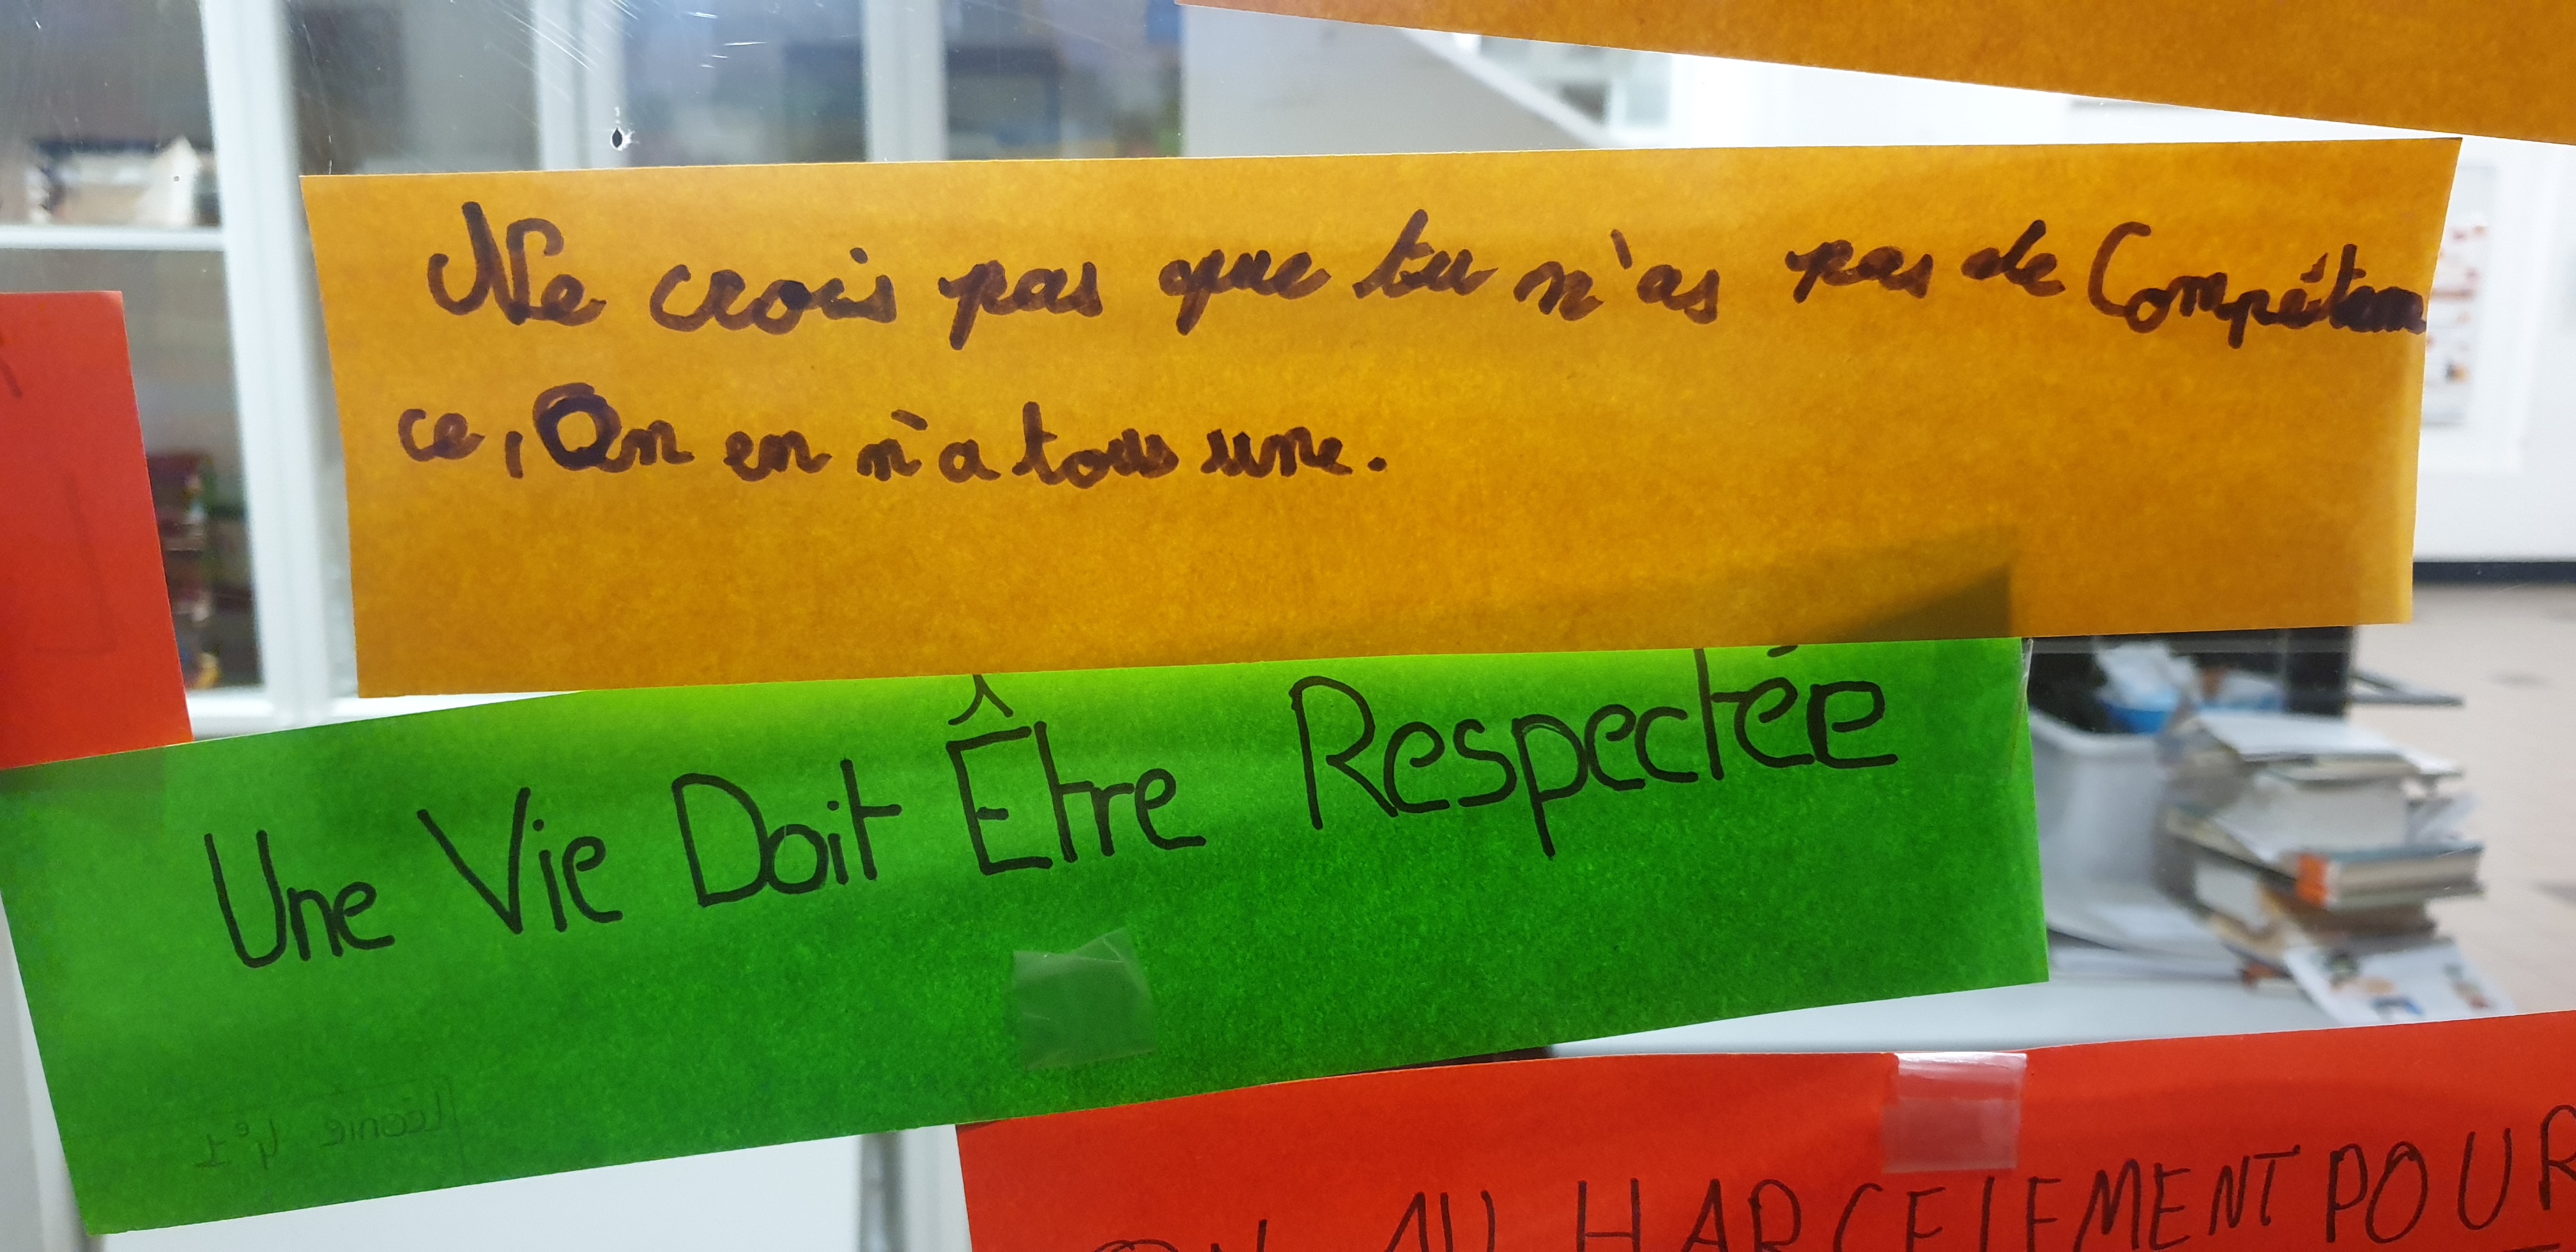 Ne crois pas que tu n'as pas de Compéten
ce, On en n'a tous une.
Une Vie Doit Être Respectée
Léonie 4e1
AU HARCELEMENT POUR